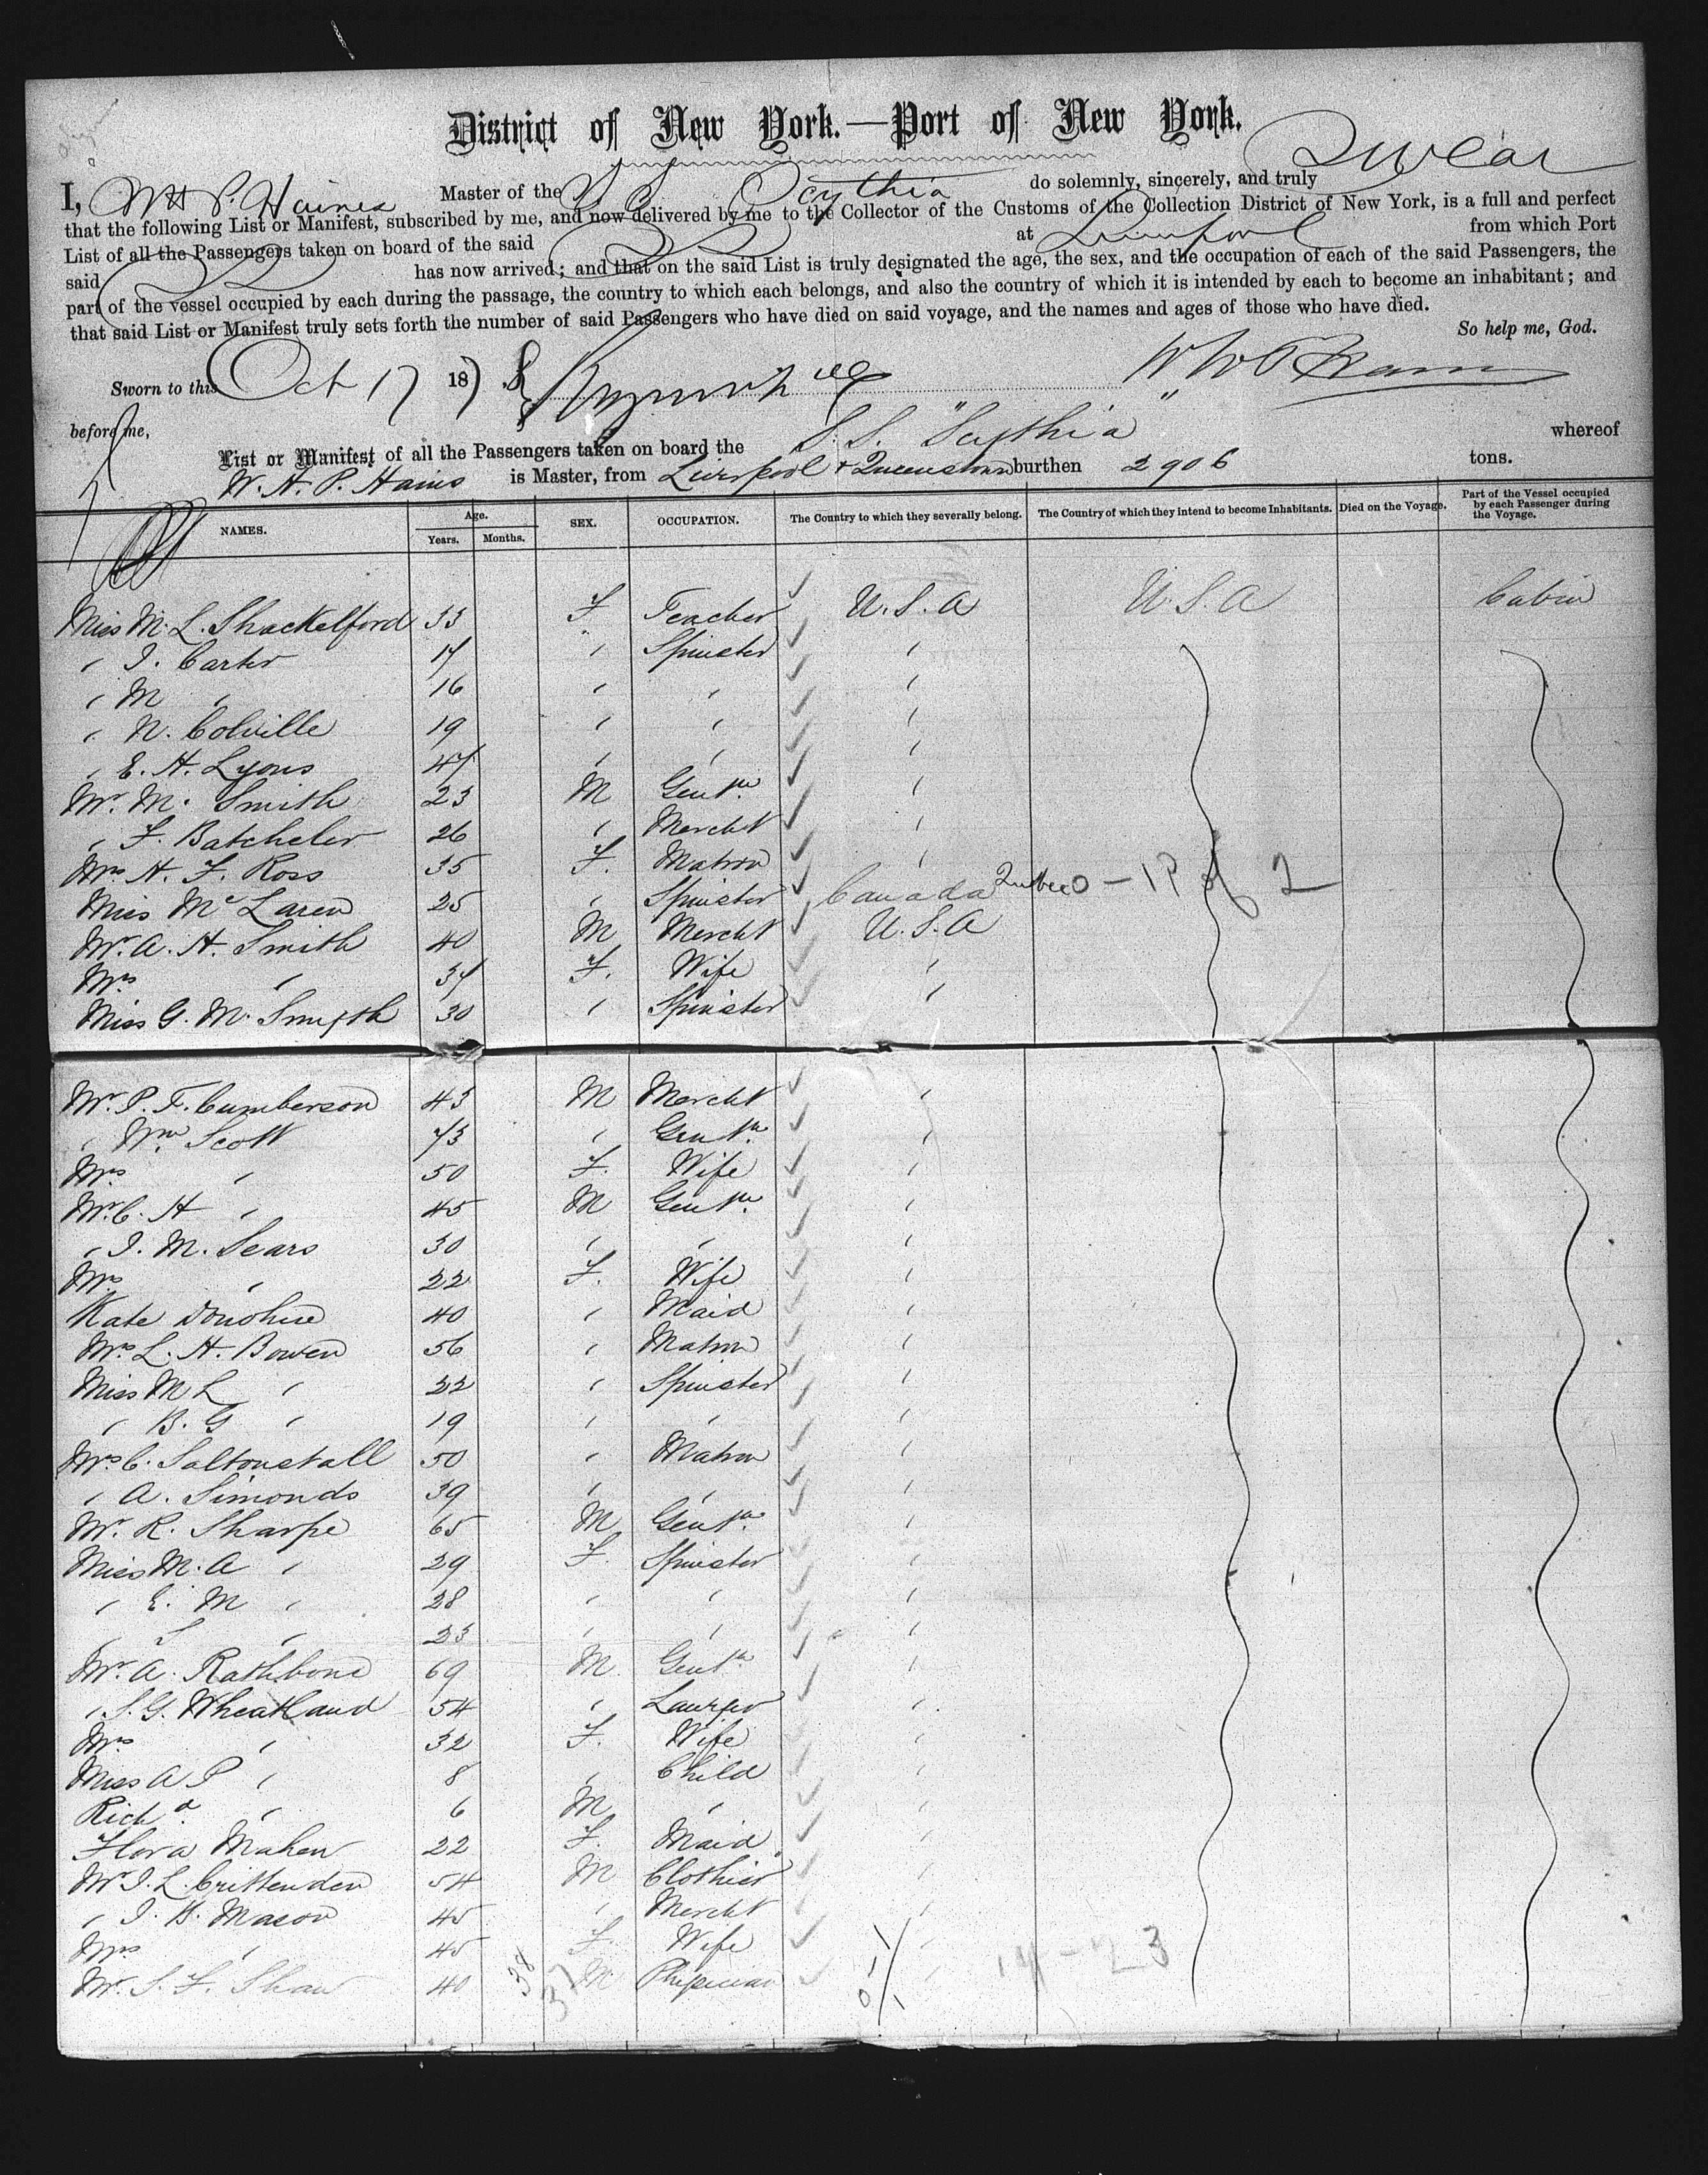 District of New York.—Port of New York.
I, Wm H. P. Haines Master of the S S Scythia do solemnly, sincerely, and truly Swear
that the following List or Manifest, subscribed by me, and now delivered by me to the Collector of the Customs of the Collection District of New York, is a full and perfect
List of all the Passengers taken on board of the said at Liverpool from which Port
said has now arrived; and that on the said List is truly designated the age, the sex, and the occupation of each of the said Passengers, the
part of the vessel occupied by each during the passage, the country to which each belongs, and also the country of which it is intended by each to become an inhabitant; and
that said List or Manifest truly sets forth the number of said Passengers who have died on said voyage, and the names and ages of those who have died.
So help me, God.
Sworn to this Oct 17 1878
before me,
List or Manifest of all the Passengers taken on board the S. S. "Scythia" whereof
W. H. P. Hains is Master, from Liverpool & Queenstown burthen 2906 tons.
NAMES. Age. Years. Months. SEX. OCCUPATION. The Country to which they severally belong. The Country of which they intend to become Inhabitants. Died on the Voyage. Part of the Vessel occupied by each Passenger during the Voyage.
Miss M. L. Shackelford 33 F Teacher U.S.A U.S.A Cabin
" I. Carter 17 " Spinster "
" M " 16 " " "
" N. Colville 19 " " "
" E. H. Lyons 47 " " "
Mr. M. Smith 23 M Gentn. "
" F. Batcheler 26 " Mercht "
Mrs H. F. Ross 35 F. Matron "
Miss McLaren 25 " Spinster Canada Quebec 0-1P 2
Mr. A. H. Smith 40 M Mercht U.S.A
Mrs " 34 F. Wife "
Miss G. M. Smyth 30 " Spinster "
Mr. P. F. Cumberson 43 M Mercht "
" Wm Scott 73 " Gentn. "
Mrs " 50 F. Wife "
Mr. C. H " 45 M Gentn. "
" I. M. Sears 30 " " "
Mrs " 22 F. Wife "
Kate Donohue 40 " Maid "
Mrs L. H. Bowen 56 " Matron "
Miss M L " 22 " Spinster "
" B. G " 19 " " "
Mrs C. Saltonstall 50 " Matron "
" A. Simonds 39 " " "
Mr. R. Sharpe 65 M Gentn. "
Miss M. A " 29 F. Spinster "
" E. M " 28 " " "
" S " 23 " " "
Mr. A. Rathbone 69 M. Gentn "
" S. G. Wheatland 54 " Lawyer "
Mrs " 32 F. Wife "
Miss A P " 8 " Child "
Richd. " 6 M " "
Flora Mahen 22 F. Maid "
Mr I. L. Crittenden 54 M Clothier "
" I. B. Mason 45 " Mercht "
Mrs " 45 F. Wife "
Mr. S. F. Shaw 40 M Physician "